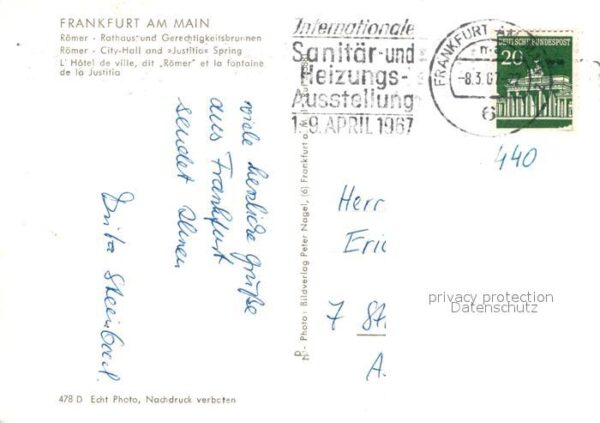 FRANKFURT AM MAIN
Römer - Rathaus und Gerechtigkeitsbrunnen
Römer - City-Hall and »Justitia« Spring
L'Hôtel de ville, dit „Römer" et la fontaine
de la Justitia
Internationale
Sanitär-und
Heizungs-
Ausstellung
1.-9. APRIL 1967
FRANKFURT AM
-8.3.67
6
DEUTSCHE BUNDESPOST
20
440
viele herzliche Grüße
aus Frankfurt
sendet Ihnen
Anita
Photo: Bildverlag Peter Nagel, (6) Frankfurt a. M.
Herr
Eric
7 St.
A.
privacy protection
Datenschutz
478 D Echt Photo, Nachdruck verboten